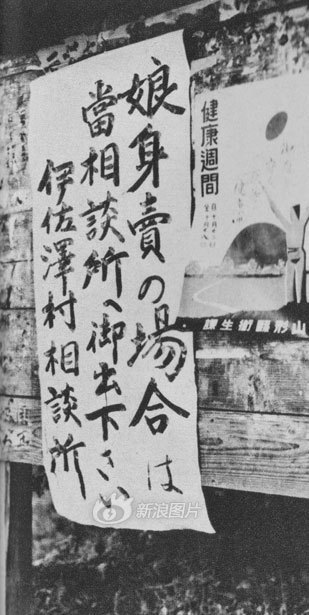 娘身賣の場合は
當相談所へ御出下さい
伊佐澤村相談所
健康週間
山形縣衛生課
新浪图片